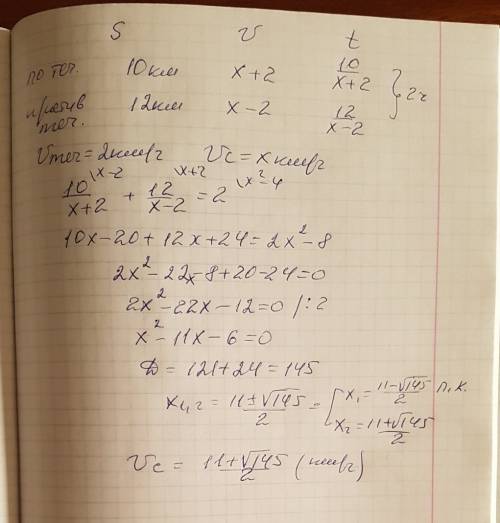 S v t
по теч. 10км x+2 10/(x+2) } 2ч
против теч. 12км x-2 12/(x-2)
Vтеч=2км/ч Vc=x км/ч
10/(x+2) \x-2 + 12/(x-2) \x+2 = 2 \x²-4
10x-20+12x+24=2x²-8
2x²-22x-8+20-24=0
2x²-22x-12=0 /:2
x²-11x-6=0
D=121+24=145
x1,2=(11±√145)/2=[x1=(11-√145)/2 п.к.
x2=(11+√145)/2
Vc=(11+√145)/2 (км/ч)